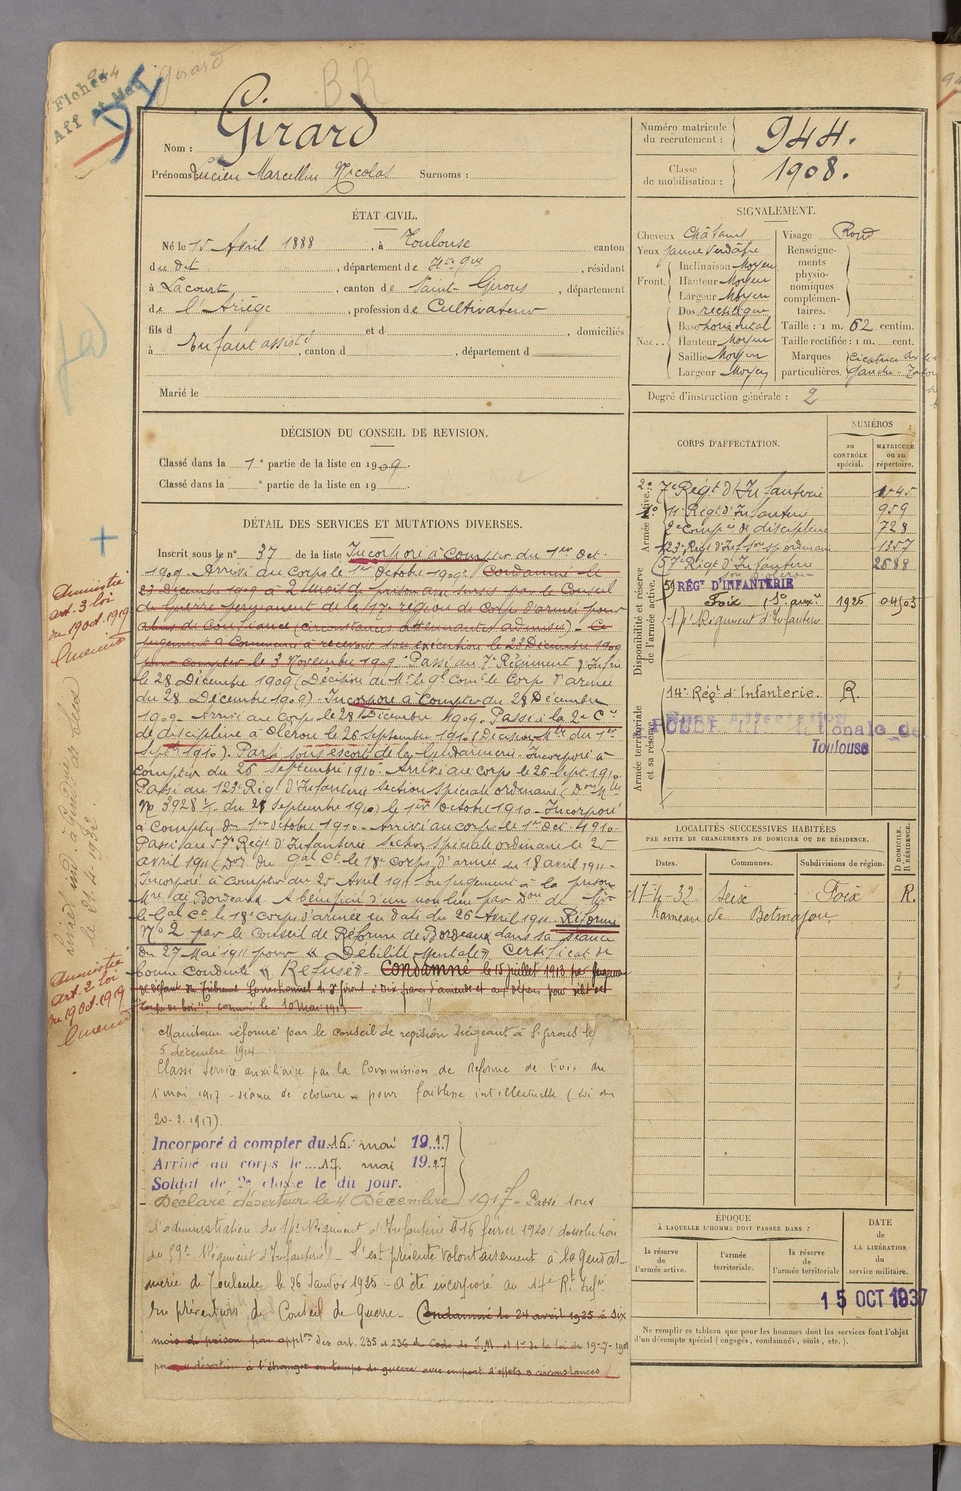 944
Fiches
Aff et Mat
Girard
BR
Nom : Girard
Prénoms Lucien Marcellin Nicolas Surnoms :
Numéro matricule du recrutement : 944.
Classe de mobilisation : 1908.
ÉTAT CIVIL.
Né le 15 Avril 1888, à Toulouse canton
du dit, département de Hte Gne, résidant
à Lacourt, canton de Saint-Girons, département
de l'Ariège, profession de Cultivateur
fils d et d, domiciliés
Enfant assisté
à, canton d, département d
Marié le
SIGNALEMENT.
Cheveux Châtains Visage Rond
Yeux jaune verdâtre
Front Inclinaison Moyen
Hauteur Moyen
Largeur Moyen
Nez Dos rectiligne
Base horizontal
Hauteur Moyen
Saillie Moyen
Largeur Moyen
Renseignements physionomiques complémentaires.
Taille : 1 m. 62 centim.
Taille rectifiée : 1 m. cent.
Marques particulières. Cicatrice
gauche -
Degré d'instruction générale : 2
DÉCISION DU CONSEIL DE REVISION.
Classé dans la 1e partie de la liste en 1909.
Classé dans la e partie de la liste en 19
DÉTAIL DES SERVICES ET MUTATIONS DIVERSES.
Inscrit sous le n° 37 de la liste Incorporé à compter du 1er Oct.
1909 - Arrivé au Corps le 1er Octobre 1909. Condamné le
23 Décembre 1909 à 2 mois de prison avec sursis par le Conseil
de Guerre permanent de la 17e région de Corps d'armée pour
abus de confiance (circonstances atténuantes admises) - Ce
jugement a commencé à recevoir son exécution le 23 Décembre 1909
pour compter le 3 Novembre 1909 - Passé au 7e Régiment d'Infrie
le 28 Décembre 1909 (Décision de Mr le Gl Comt le Corps d'armée
du 28 Décembre 1909) - Incorporé à compter du 28 Décembre
1909 - Arrivé au Corps le 28 Décembre 1909. Passé à la 2e Cie
de discipline à Oléron le 26 septembre 1910 (Décision Mlle du 1er
sept. 1910). Parti sous escorte de la Gendarmerie - Incorporé à
compter du 26 septembre 1910 - Arrivé au corps le 26 Sept. 1910
Passé au 123e Régt d'Infanterie section spéciale ordinaire (Don Mlle
No 3928 1/1 du 28 septembre 1910) le 1er Octobre 1910 - Incorporé
à compter du 1er Octobre 1910 - Arrivé au corps le 1er Oct. 1910 -
Passé au 57e Régt d'Infanterie section spéciale ordinaire le 25
avril 1911 (Don du Gal Ct le 18e corps d'armée du 18 avril 1911 -
Incorporé à compter du 25 Avril 1911 En jugement à la prison
Mre de Bordeaux. A bénéficié d'un non lieu par Don de Mr
le Gal Ct le 18e Corps d'armée en date du 26 Avril 1911. Réformé
No 2 par le Conseil de Réforme de Bordeaux dans sa séance
du 27 Mai 1911 pour « Débilité mentale ». Certificat de
bonne Conduite « Refusé » - Condamné le 15 juillet 1913 par jugement
de défaut du Tribunal Correctionnel de St Girons à dix francs d'amende et aux dépens pour délit de
"coupe de bois", commis le 10 mai 1913
Maintenu réformé par le conseil de revision siégeant à St Girons le
5 décembre 1914
Classé Service auxiliaire par la Commission de Réforme de Foix du
1er mai 1917 - séance de clôture - pour faiblesse intellectuelle (Loi du
20-2-1917).
Incorporé à compter du 16 mai 1917
Arrivé au corps le 17 mai 1917
Soldat de 2e classe le dit jour.
Déclaré déserteur le 4 Décembre 1917 - Passé sous
l'administration du 14e Régiment d'Infanterie le 16 février 1920 (dissolution
du 59e Régiment d'Infanterie) - S'est présenté volontairement à la Gendar-
merie de Toulouse le 26 Janvier 1925 - a été incorporé au 14e Rt Infie
En prévention de Conseil de Guerre - Condamné le 24 avril 1925 à Six
mois de prison par applon des art. 235 et 236 du Code de J. M et 1er de la loi du 19-7-1901
pour désertion à l'étranger en temps de guerre avec emport d'effets et circonstances
Amnistié
art. 3 loi
du 19 oct. 1919
Amnistié
art. 2 loi
du 19 Oct. 1919
CORPS D'AFFECTATION.
NUMÉROS
au CONTRÔLE spécial.
MATRICULE ou au répertoire.
Armée active.
7e Régt d'Infanterie 1545
11e Régt d'Infanterie 959
2e Compie de discipline 728
123e Régt d'Inf. son sp. ordinaire 1357
57e Régt d'Infanterie 2588
Disponibilité et réserve de l'armée active.
59 RÉGt D'INFANTERIE
Foix (Sce auxre) 1926 04503
14e Régiment d'Infanterie
14e Régt d'Infanterie. R.
Armée territoriale et sa réserve
Sans Affectation
Toulouse
LOCALITÉS SUCCESSIVES HABITÉES
PAR SUITE DE CHANGEMENTS DE DOMICILE OU DE RÉSIDENCE.
D DOMICILE. R RÉSIDENCE.
Dates. Communes. Subdivisions de région.
17-4-32 Seix Foix R.
Hameau de Betmajou
ÉPOQUE
À LAQUELLE L'HOMME DOIT PASSER DANS :
la réserve de l'armée active.
l'armée territoriale.
la réserve de l'armée territoriale
DATE de LA LIBÉRATION du service militaire.
15 OCT 1937
Ne remplir ce tableau que pour les hommes dont les services font l'objet
d'un décompte spécial (engagés, condamnés, omis, etc.).